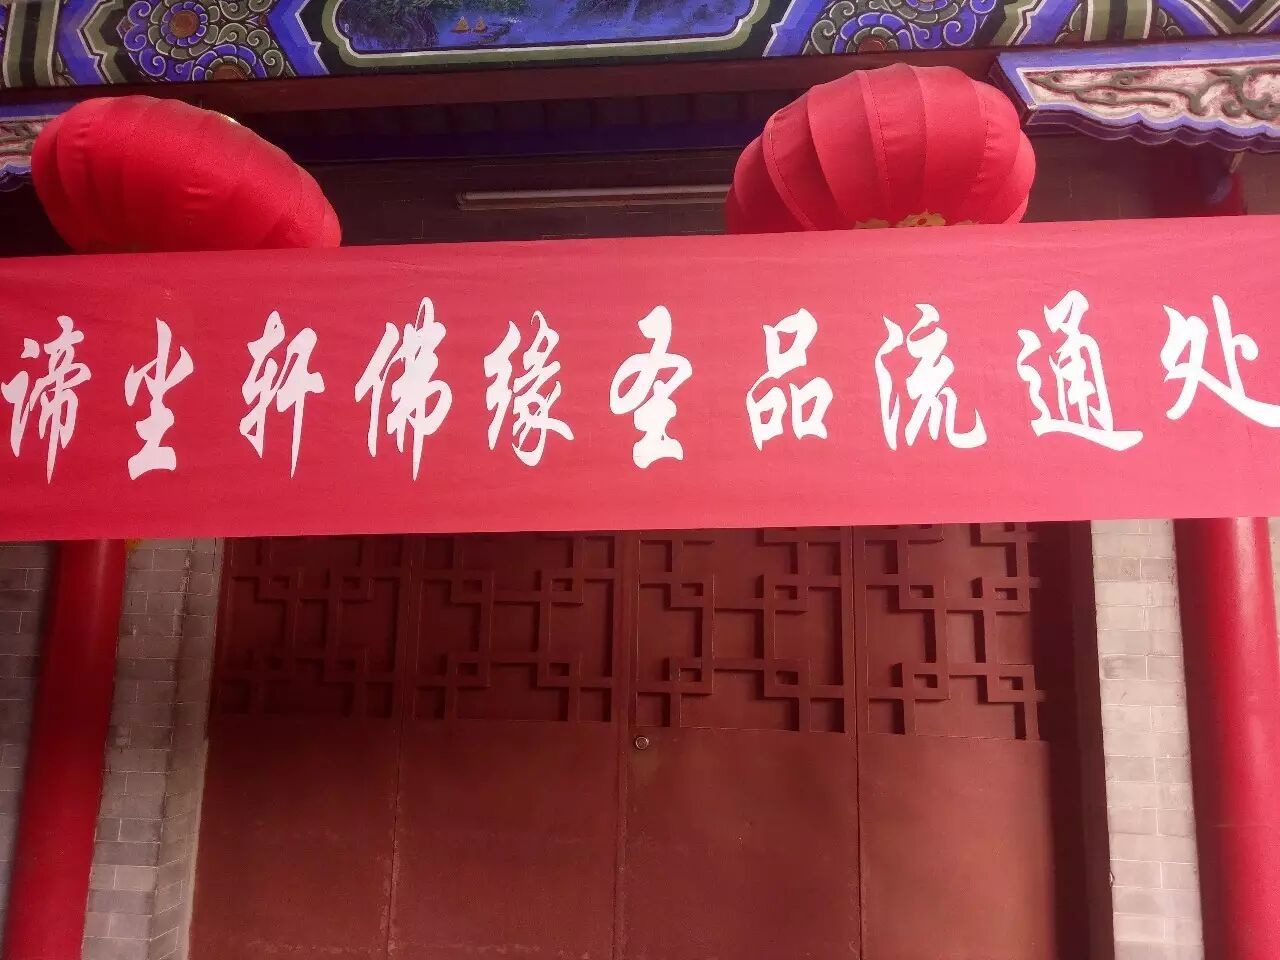 谛尘轩佛缘圣品流通处